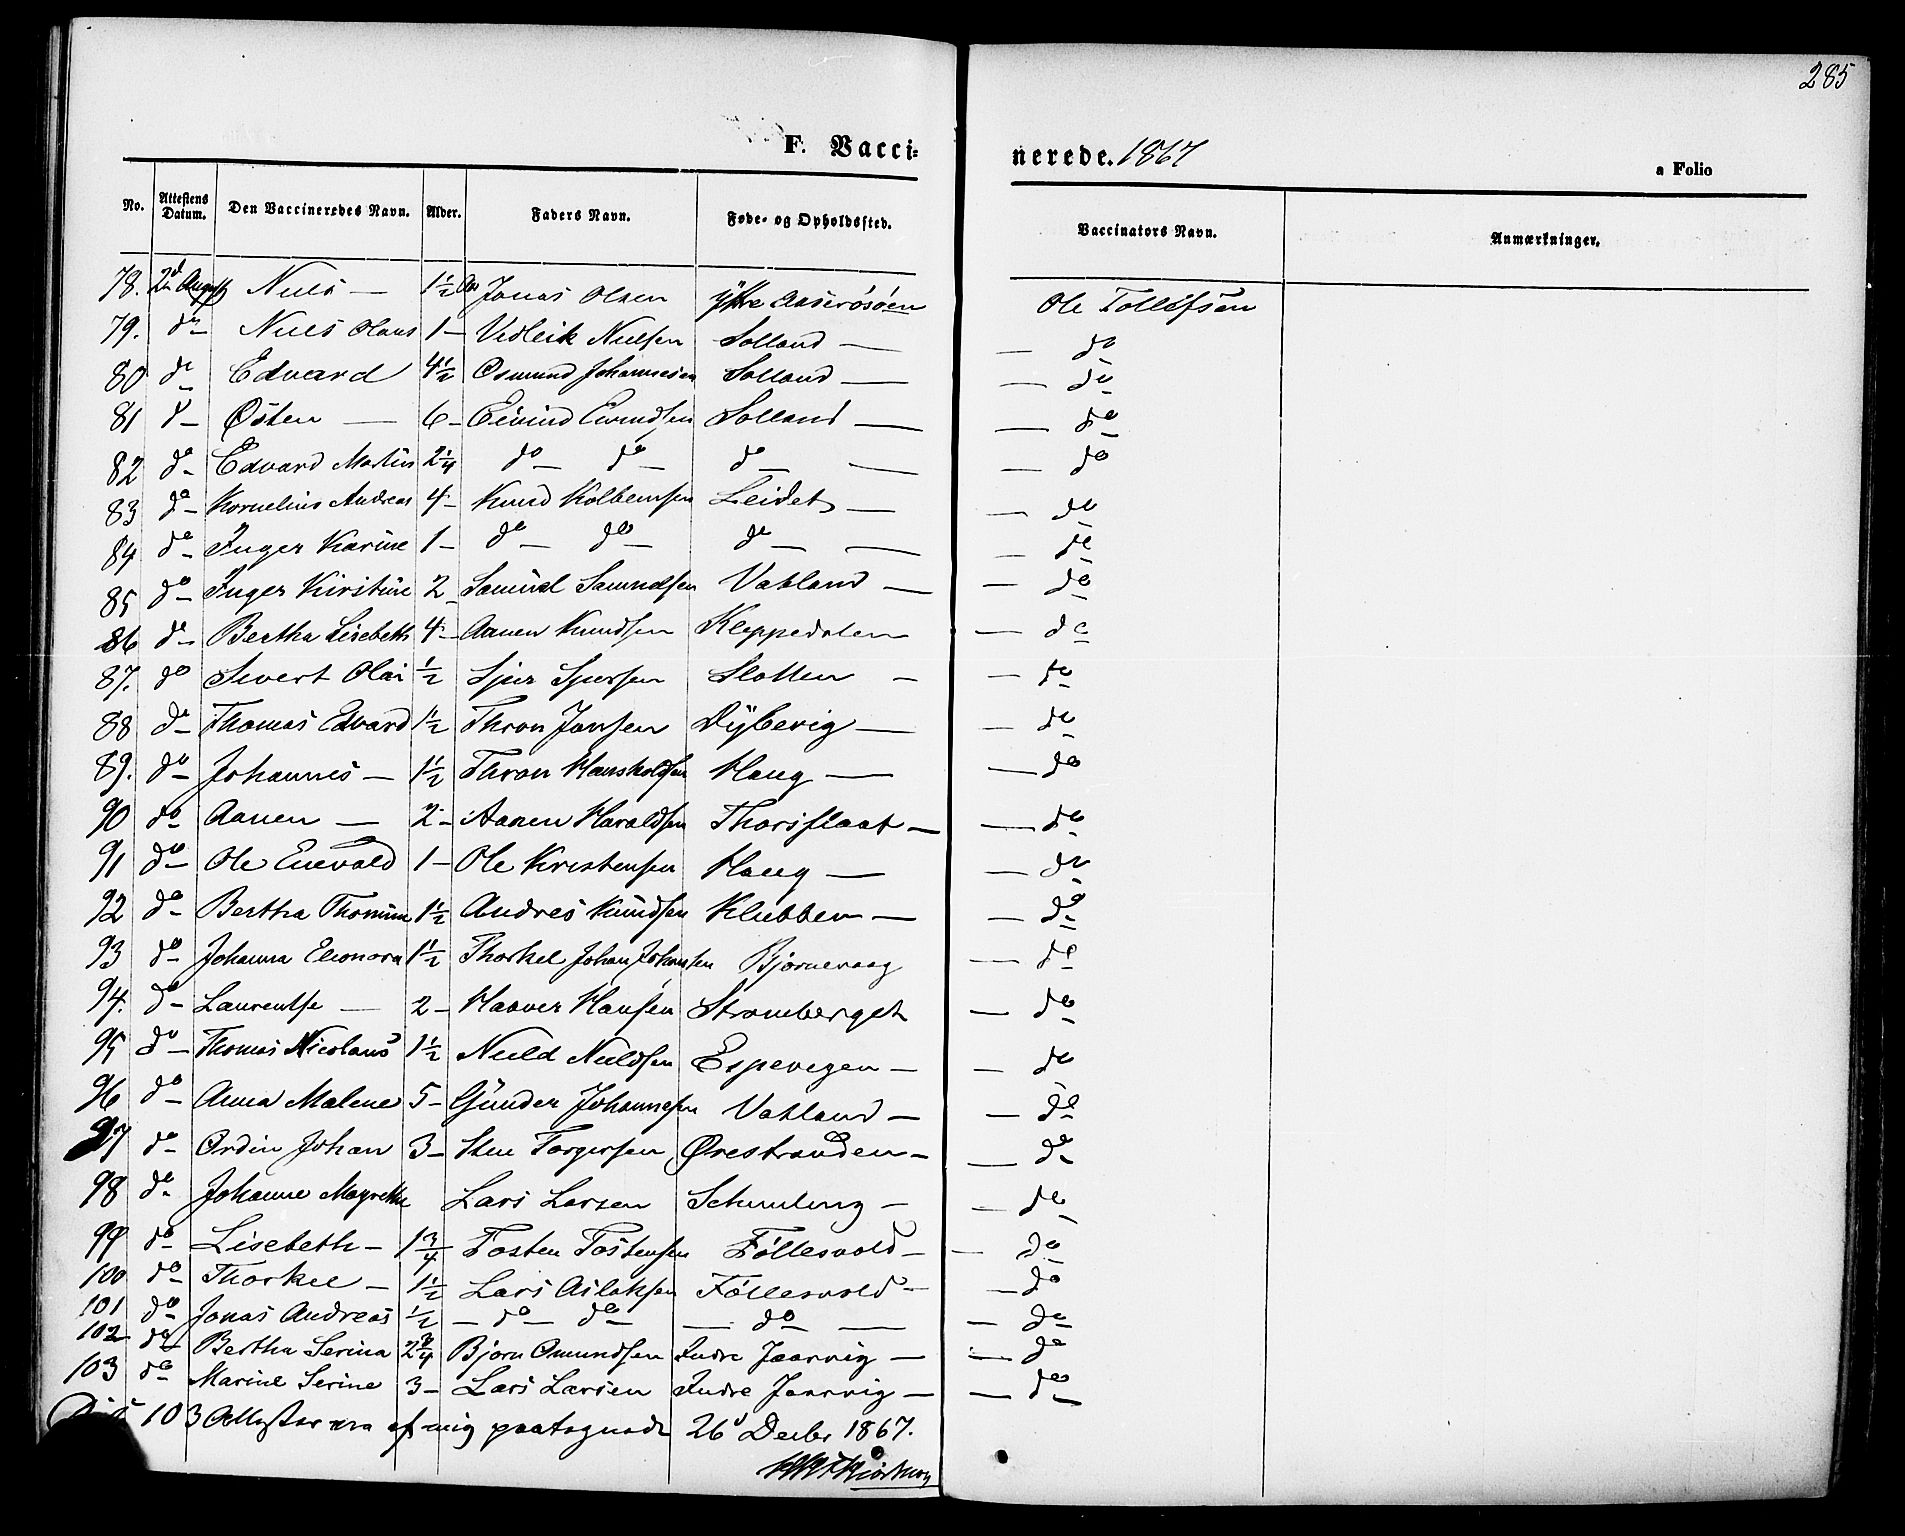 285
F. Vacci-
nerede. 1867
a Folio
No. Attestens Datum. Den Vaccineredes Navn. Alder. Faders Navn. Føde- og Opholdssted. Vaccinators Navn. Anmærkninger.
78. 2d August Niels — 1½ Aar Jonas Olsen Ytre Aaserøsøen Ole Tollefsen
79. do Niels Olaus 1 — Vedleik Nielsen Solland — — do
80 do Edvard 4½ Osmund Johannesen Solland — — do
81 do Østen — 6 — Eivind Eivindsen Solland — — do
82 do Edvard Martin 2¼ do — do — do — — do
83 do Kornelius Andreas 4 — Knud Kolbensen Leidet — — do
84 do Inger Karine 1 — do — do — do — — do
85 do Inger Kirstine 2 — Samuel Samuelsen Vatland — — do
86 do Bertha Lisebeth 4 — Aanen Knudsen Kleppedalen — do
87. do Sivert Olai ½ Sjur Sjursen Slotten — — do
88 do Thomas Edvard 1½ Thron Jansen Dybevig — — do
89. do Johannes — 1½ Thron Hansholdsen Haug — — do
90 do Aanen — 2 — Aanen Haraldsen Thorsflaat — — do
91 do Ole Enevold 1 — Ole Kristensen Haug — — do
92 do Bertha Thomine 1½ Andres Knudsen Klubben — — do
93 do Johanna Eleonora 1½ Thorkel Johan Johansen Bjørnevaag — do
94. do Laurentse — 2 — Haaver Hansen Stromberget — do
95 do Thomas Nicolaus 1½ Nield Nieldsen Espevegen — — do
96 do Anna Malene 5 — Gunder Johannesen Vatland — — do
97 do Ordin Johan 3 — Sten Torgersen Ørestranden — — do
98 do Johanne Magrethe Lars Larsen — do
99 do Lisebeth — 1¾ Tosten Tostensen Föllesvold — — do
100 do Thorkel — 1½ Lars Aslaksen Föllesvold — — do
101 do Jonas Andreas ½ — do — do — do — — do
102 do Bertha Serina 2¾ Bjørn Omundsen Indre Jaasvig — — do
103 do Marine Serine 3 — Lars Larsen Indre Jaasvig — — do
103 Attester ere af mig paategnede 26d Decbr 1867.